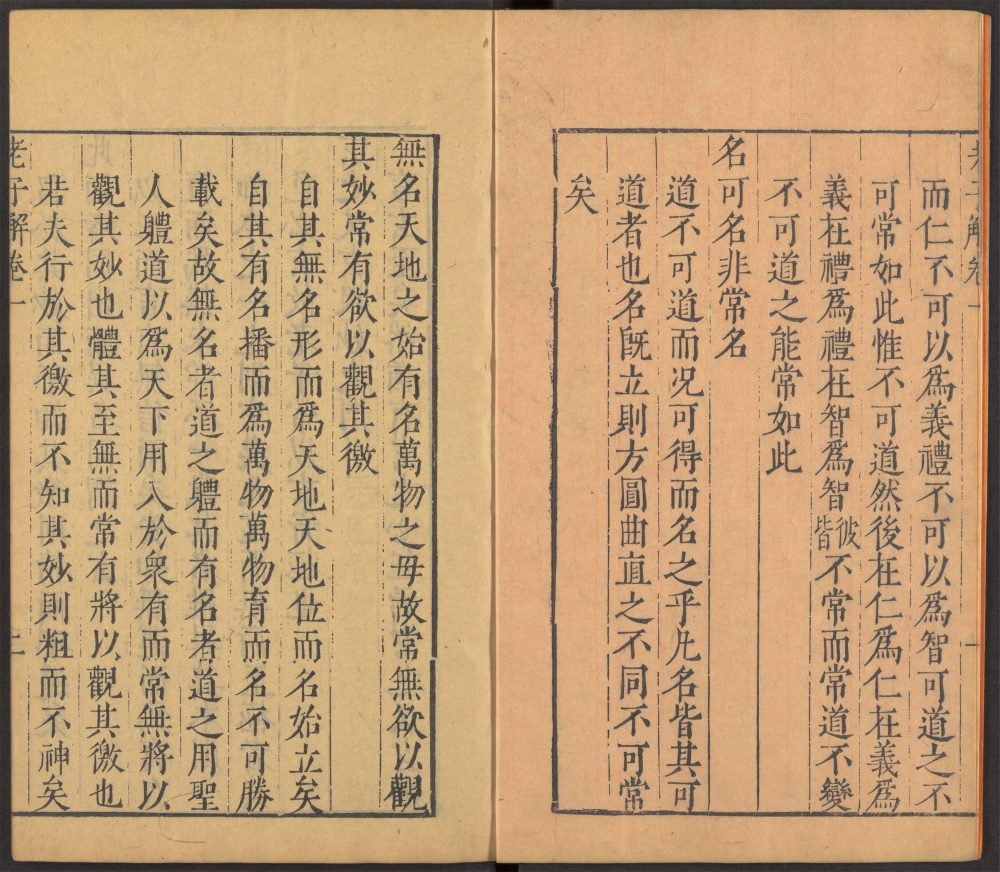 老子解卷一
一
而仁不可以爲義禮不可以爲智可道之不
可常如此惟不可道然後在仁爲仁在義爲
義在禮爲禮在智爲智彼皆不常而常道不變
不可道之能常如此
名可名非常名
道不可道而况可得而名之乎凡名皆其可
道者也名旣立則方圓曲直之不同不可常
矣
無名天地之始有名萬物之母故常無欲以觀
其妙常有欲以觀其徼
自其無名形而爲天地天地位而名始立矣
自其有名播而爲萬物萬物育而名不可勝
載矣故無名者道之體而有名者道之用聖
人體道以爲天下用入於衆有而常無將以
觀其妙也體其至無而常有將以觀其徼也
若夫行於其徼而不知其妙則粗而不神矣
老子解卷一
二